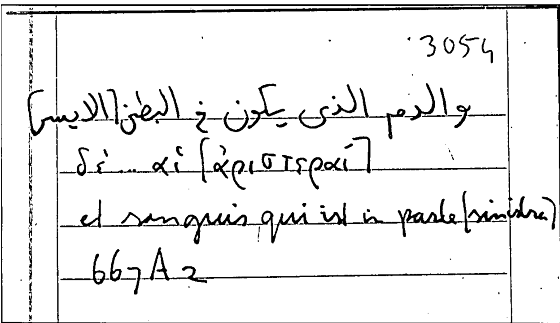 3054
والدم الذى يكون فى البطن [الايسر]
δέ... αἱ [ἀριστεραί]
et sanguis qui est in parte [sinistra]
667 A 2